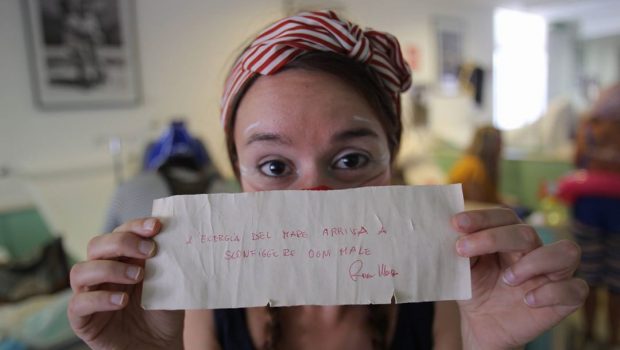 L'ENERGIA DEL MARE ARRIVA A
SCONFIGGERE OGNI MALE